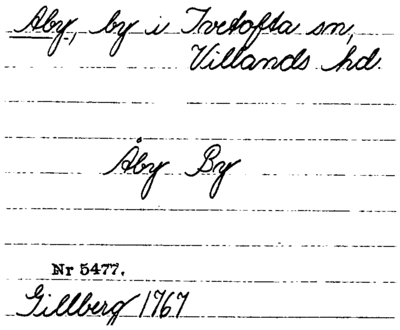 Åby, by i Ivetofta sn,
Villands hd.
Åby By
Nr 5477.
Gillberg 1767